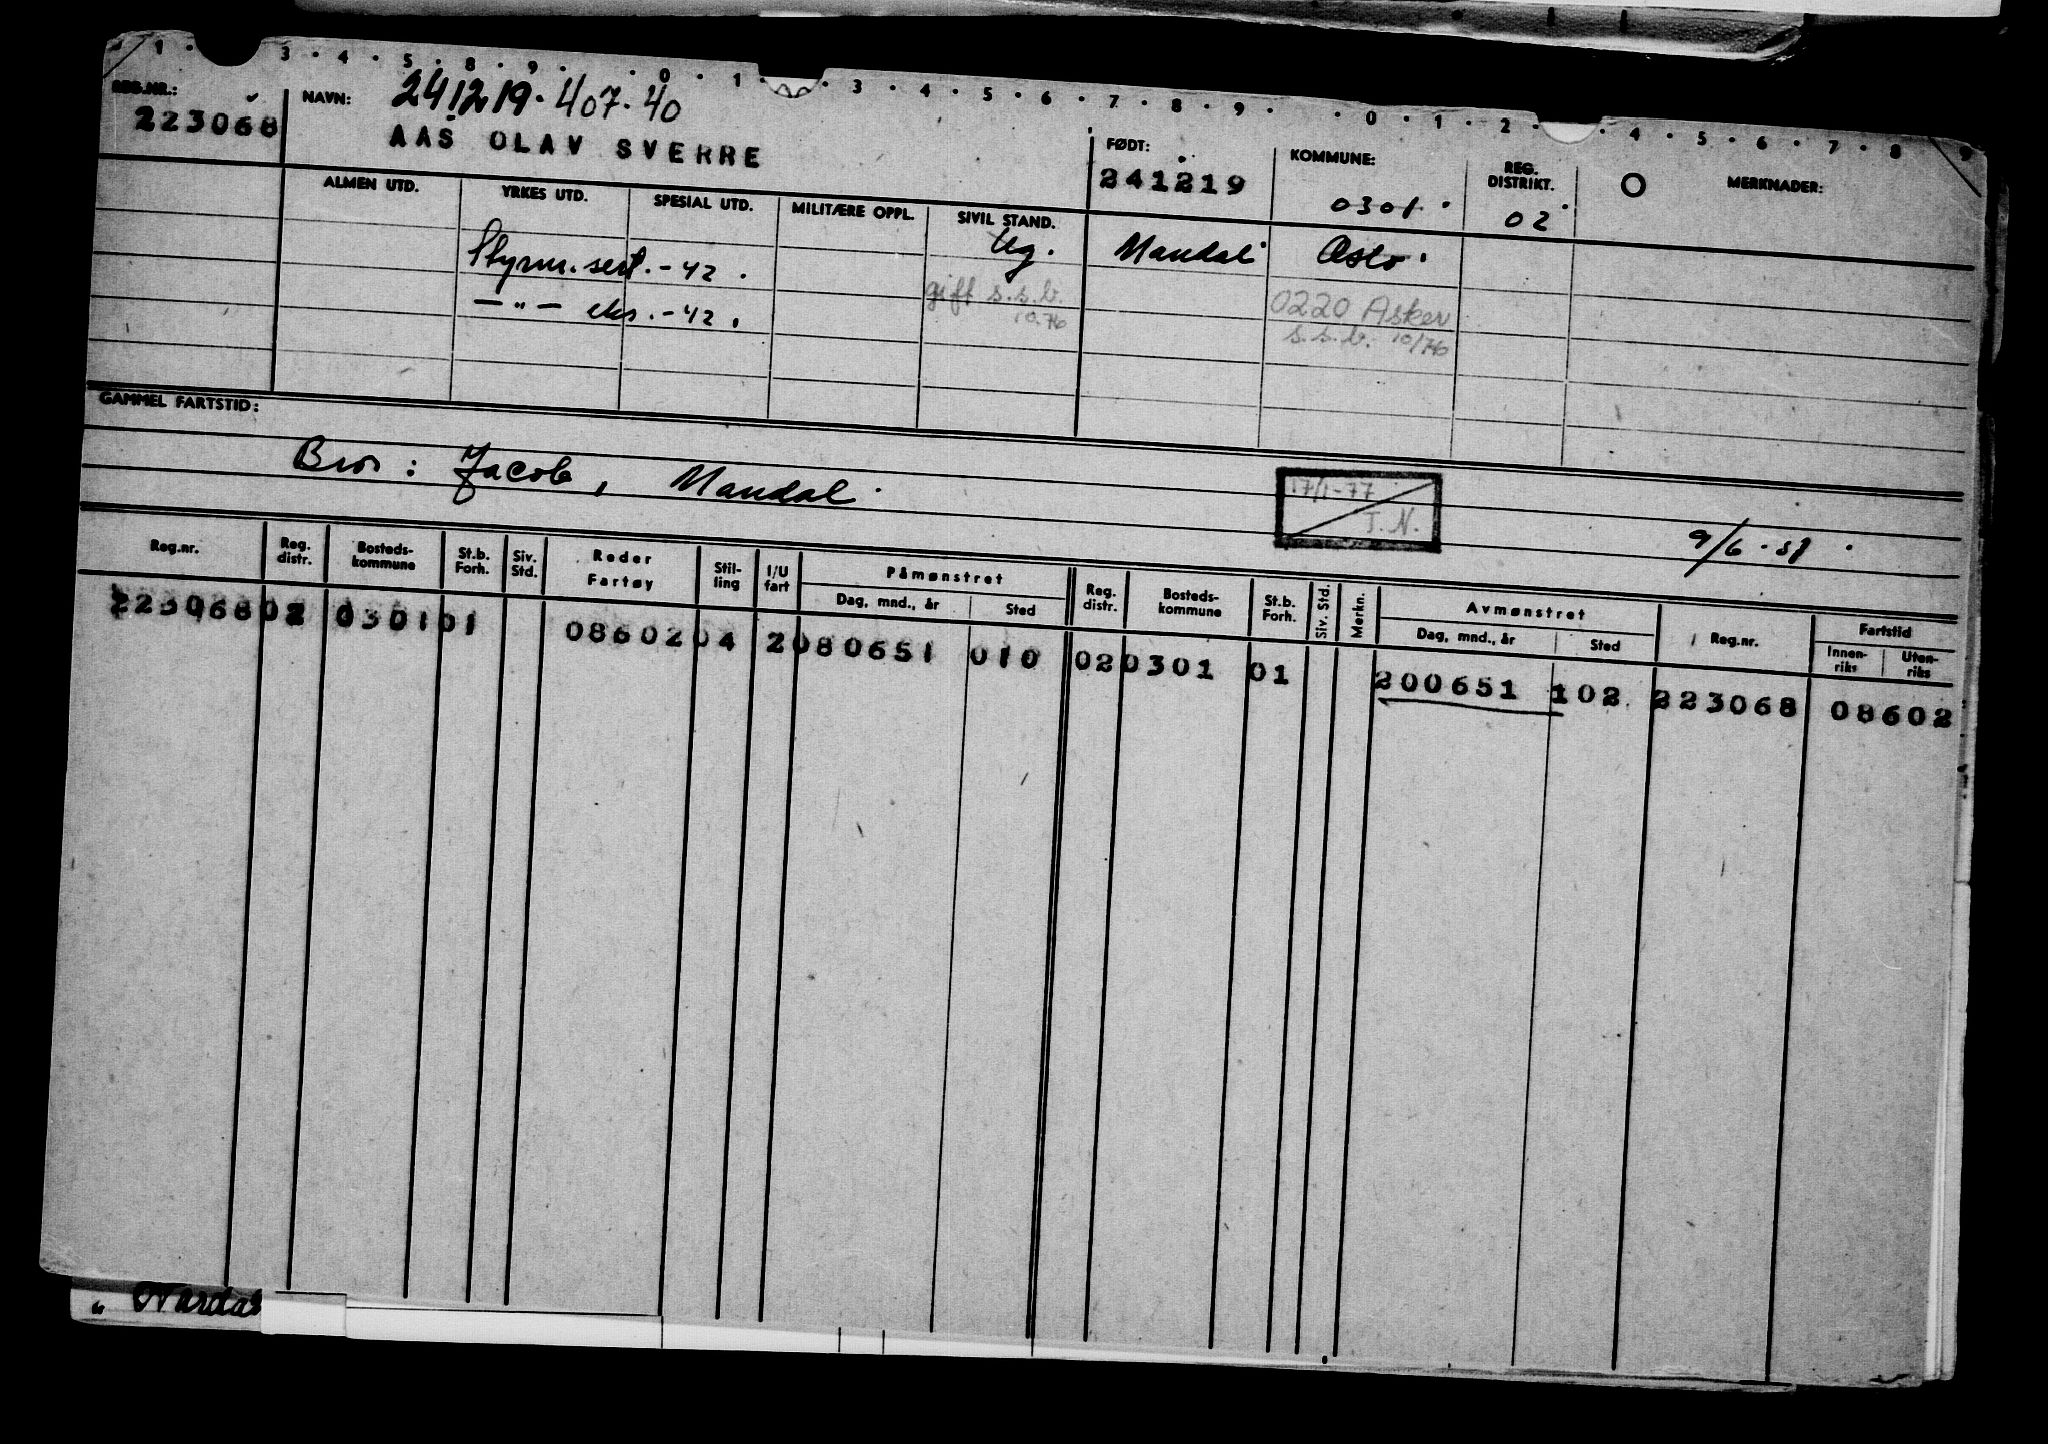 1 · 3 · 4 · 5 · 8 · 9 · · 0 · 1 · 3 · 4 · 5 · 6 · 7 · 8 · 9 · · 0 · 1 · 2 · 4 · 5 · 6 · 7 · 8 9
REG.NR.: NAVN: 241219.407.40
223068 AAS OLAV SVERRE
FØDT: KOMMUNE: REG. DISTRIKT. O MERKNADER:
241219 0301 02
ALMEN UTD. YRKES UTD. SPESIAL UTD. MILITÆRE OPPL. SIVIL STAND.
Styrm. sert. - 42. Ug. Mandal Oslo
— " — eks. - 42. gift s.s.b. 10.76 0220 Asker
s.s.b. 10/76
GAMMEL FARTSTID:
Bror: Jacob, Mandal
17/1-77
T.N.
Reg.nr. Reg. distr. Bosteds-kommune St.b. Forh. Siv. Std. Reder Fartøy Stil-ling I/U fart Påmønstret Dag, mnd., år Sted Reg. distr. Bosteds-kommune St.b. Forh. Siv. Std. Merkn. Avmønstret Dag, mnd., år Sted Reg.nr. Fartstid Innen-riks Uten-riks
223068 02 0301 01 08602 04 2 080651 010 02 0301 01 200651 102 223068 08602
" Nardal